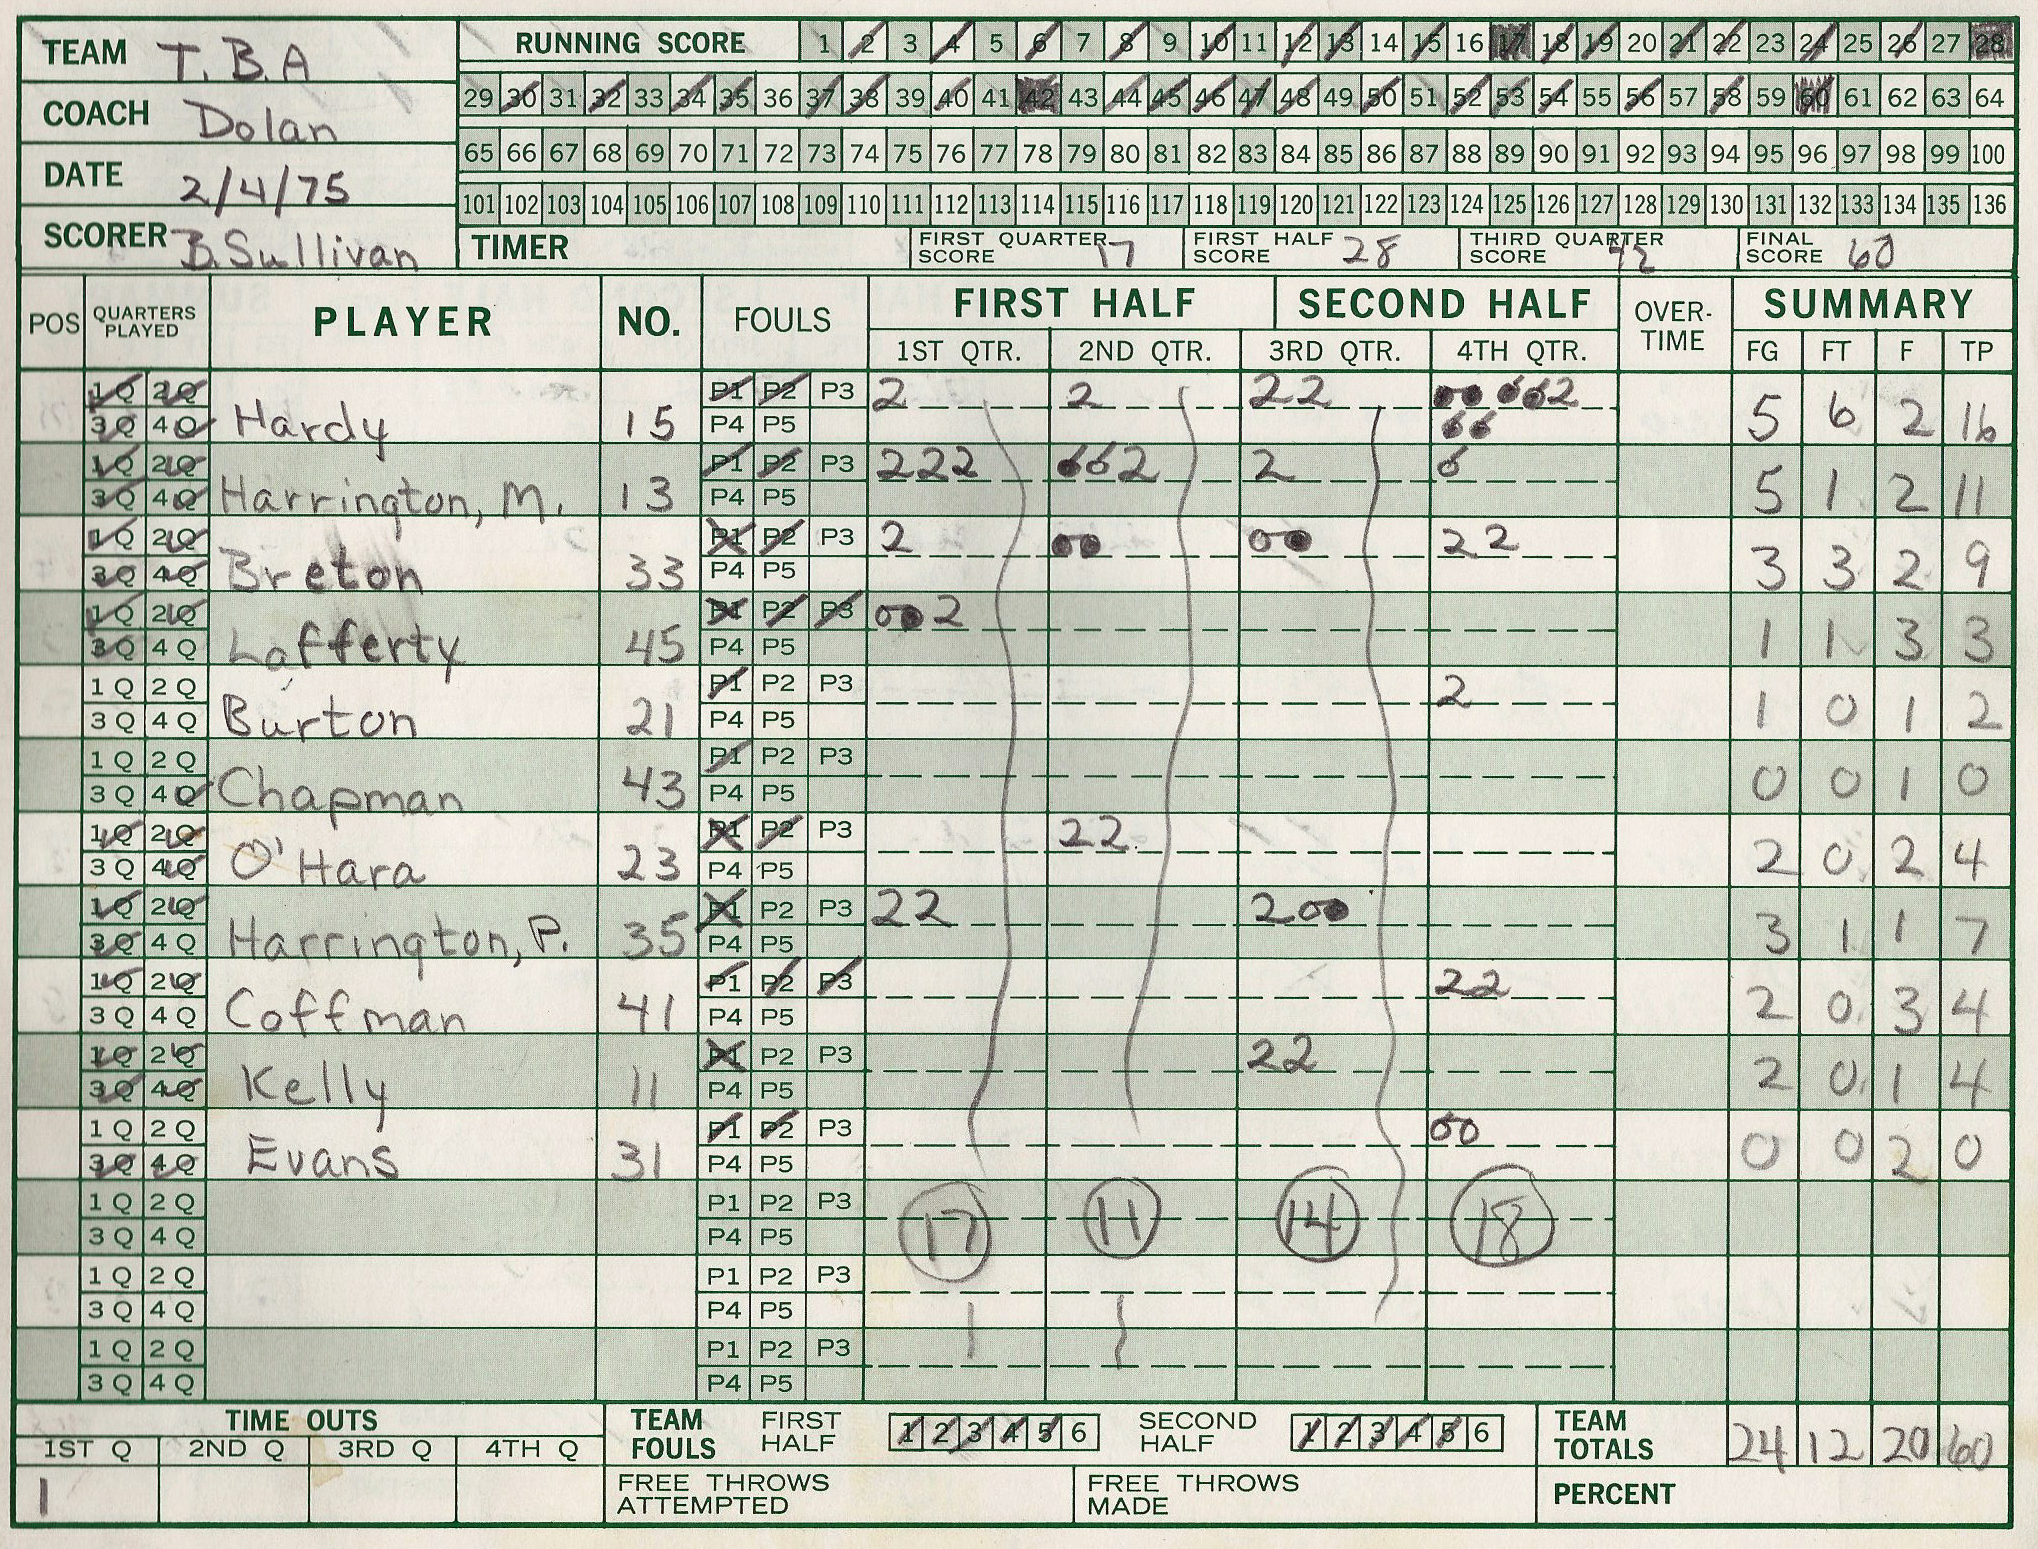 TEAM T.B.A
COACH Dolan
DATE 2/4/75
SCORER B.Sullivan
RUNNING SCORE 1 2 3 4 5 6 7 8 9 10 11 12 13 14 15 16 17 18 19 20 21 22 23 24 25 26 27 28
29 30 31 32 33 34 35 36 37 38 39 40 41 42 43 44 45 46 47 48 49 50 51 52 53 54 55 56 57 58 59 60 61 62 63 64
65 66 67 68 69 70 71 72 73 74 75 76 77 78 79 80 81 82 83 84 85 86 87 88 89 90 91 92 93 94 95 96 97 98 99 100
101 102 103 104 105 106 107 108 109 110 111 112 113 114 115 116 117 118 119 120 121 122 123 124 125 126 127 128 129 130 131 132 133 134 135 136
TIMER FIRST QUARTER SCORE 17 FIRST HALF SCORE 28 THIRD QUARTER SCORE 42 FINAL SCORE 60
POS QUARTERS PLAYED PLAYER NO. FOULS FIRST HALF SECOND HALF OVER-TIME SUMMARY
1ST QTR. 2ND QTR. 3RD QTR. 4TH QTR. FG FT F TP
1Q 2Q P1 P2 P3 2 2 22 00 662
3Q 4Q Hardy 15 P4 P5 66 5 6 2 16
1Q 2Q P1 P2 P3 222 662 2 6
3Q 4Q Harrington, M. 13 P4 P5 5 1 2 11
1Q 2Q P1 P2 P3 2 00 00 22
3Q 4Q Breton 33 P4 P5 3 3 2 9
1Q 2Q P1 P2 P3 002
3Q 4Q Lafferty 45 P4 P5 1 1 3 3
1Q 2Q P1 P2 P3 2
3Q 4Q Burton 21 P4 P5 1 0 1 2
1Q 2Q P1 P2 P3
3Q 4Q Chapman 43 P4 P5 0 0 1 0
1Q 2Q P1 P2 P3 22
3Q 4Q O'Hara 23 P4 P5 2 0 2 4
1Q 2Q P1 P2 P3 22 200
3Q 4Q Harrington, P. 35 P4 P5 3 1 1 7
1Q 2Q P1 P2 P3 22
3Q 4Q Coffman 41 P4 P5 2 0 3 4
1Q 2Q P1 P2 P3 22
3Q 4Q Kelly 11 P4 P5 2 0 1 4
1Q 2Q P1 P2 P3 00
3Q 4Q Evans 31 P4 P5 0 0 2 0
1Q 2Q P1 P2 P3
3Q 4Q P4 P5 17 11 14 18
1Q 2Q P1 P2 P3
3Q 4Q P4 P5
1Q 2Q P1 P2 P3
3Q 4Q P4 P5
TIME OUTS
1ST Q 2ND Q 3RD Q 4TH Q
1
TEAM FOULS FIRST HALF 1 2 3 4 5 6 SECOND HALF 1 2 3 4 5 6
FREE THROWS ATTEMPTED FREE THROWS MADE
TEAM TOTALS 24 12 20 60
PERCENT